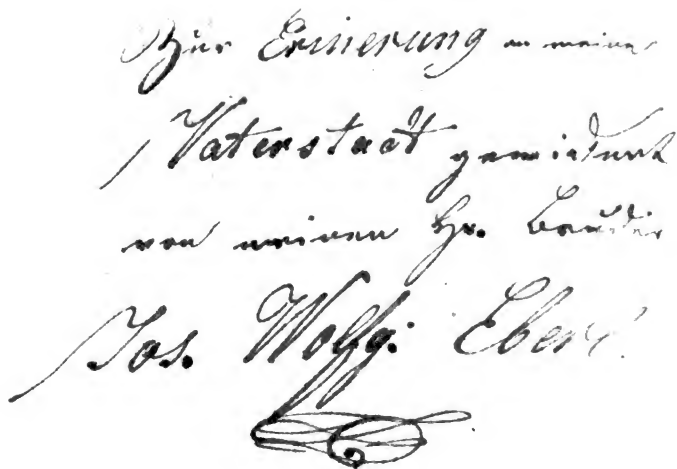 Zur Erinerung an meine
Vaterstadt gewidmet
von meinen Hr. Bruder
Jos. Wolfg: Eberl.